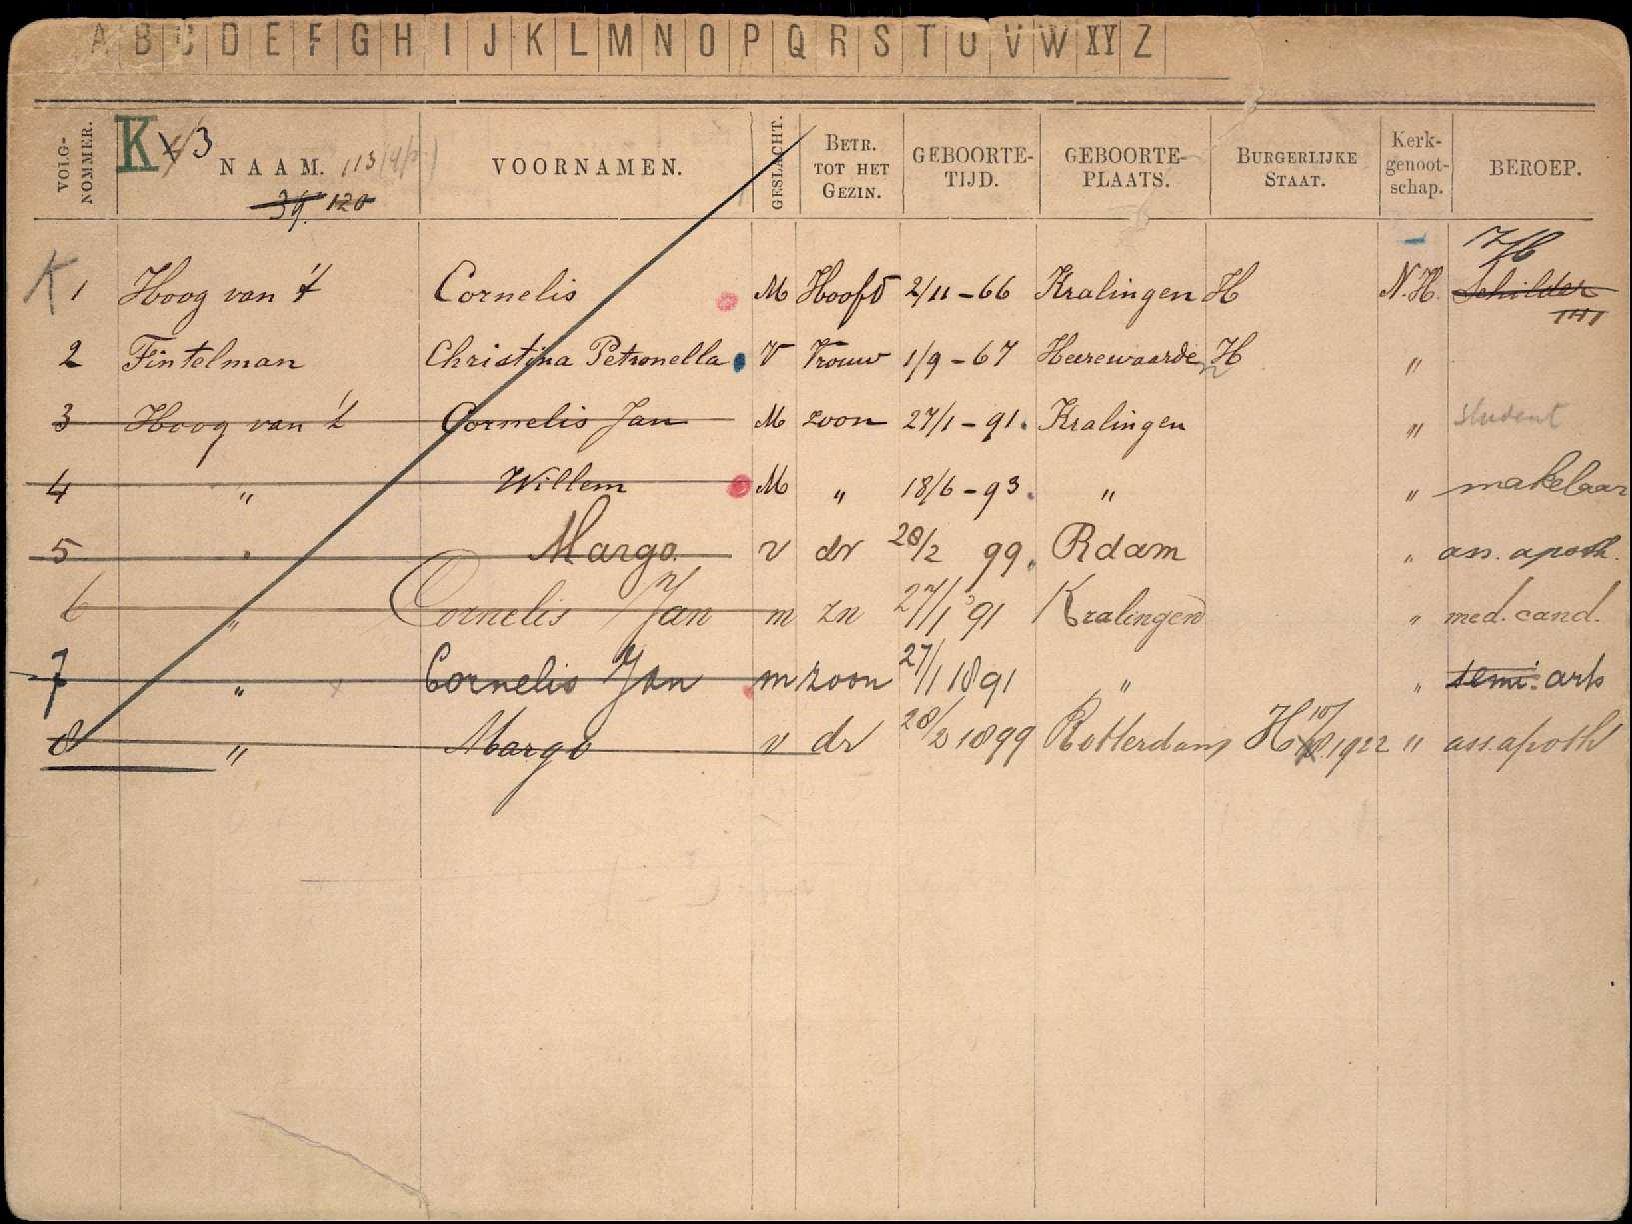 A B C D E F G H I J K L M N O P Q R S T U V W XY Z
VOLG-NOMMER. K 3 NAAM. 113 VOORNAMEN. GESLACHT. BETR. TOT HET GEZIN. GEBOORTE-TIJD. GEBOORTE-PLAATS. BURGERLIJKE STAAT. Kerk-genoot-schap. BEROEP.
39. 120
K 1 Hoog van 't Cornelis M Hoofd 2/11-66 Kralingen H N.H. Schilder
2 Fintelman Christina Petronella V Vrouw 1/9-67 Heerewaarden H "
3 Hoog van 't Cornelis Jan M zoon 27/1-91. Kralingen " student
4 " Willem M " 18/6-93. " " makelaar
5 " Margo. v dr 28/2 99. Rdam " ass. apoth.
6 " Cornelis Jan m zn 27/1 91 Kralingen " med. cand.
7 " Cornelis Jan m zoon 27/1 1891 " " semi-arts
8 " Margo v dr 28/2 1899 Rotterdam H 10/ 1922 " ass. apoth